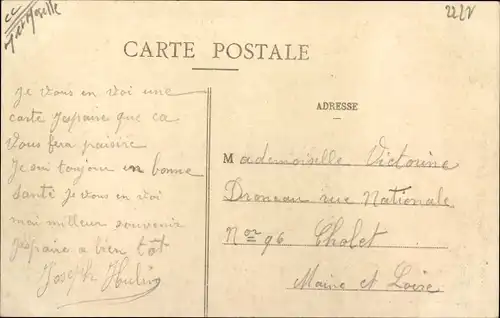 CC
Mthe Moselle
22LV
CARTE POSTALE
ADRESSE
je vous en voi une
carte J'espaire que ca
vous fera plaisire
Je sui toujour en bonne
santé je vous en voi
mai milleur souvenir
jespaire a bien tôt
Joseph Houlin
Mademoiselle Victorine
Droneau rue Nationale
Nor 96 Cholet
Maine et Loire